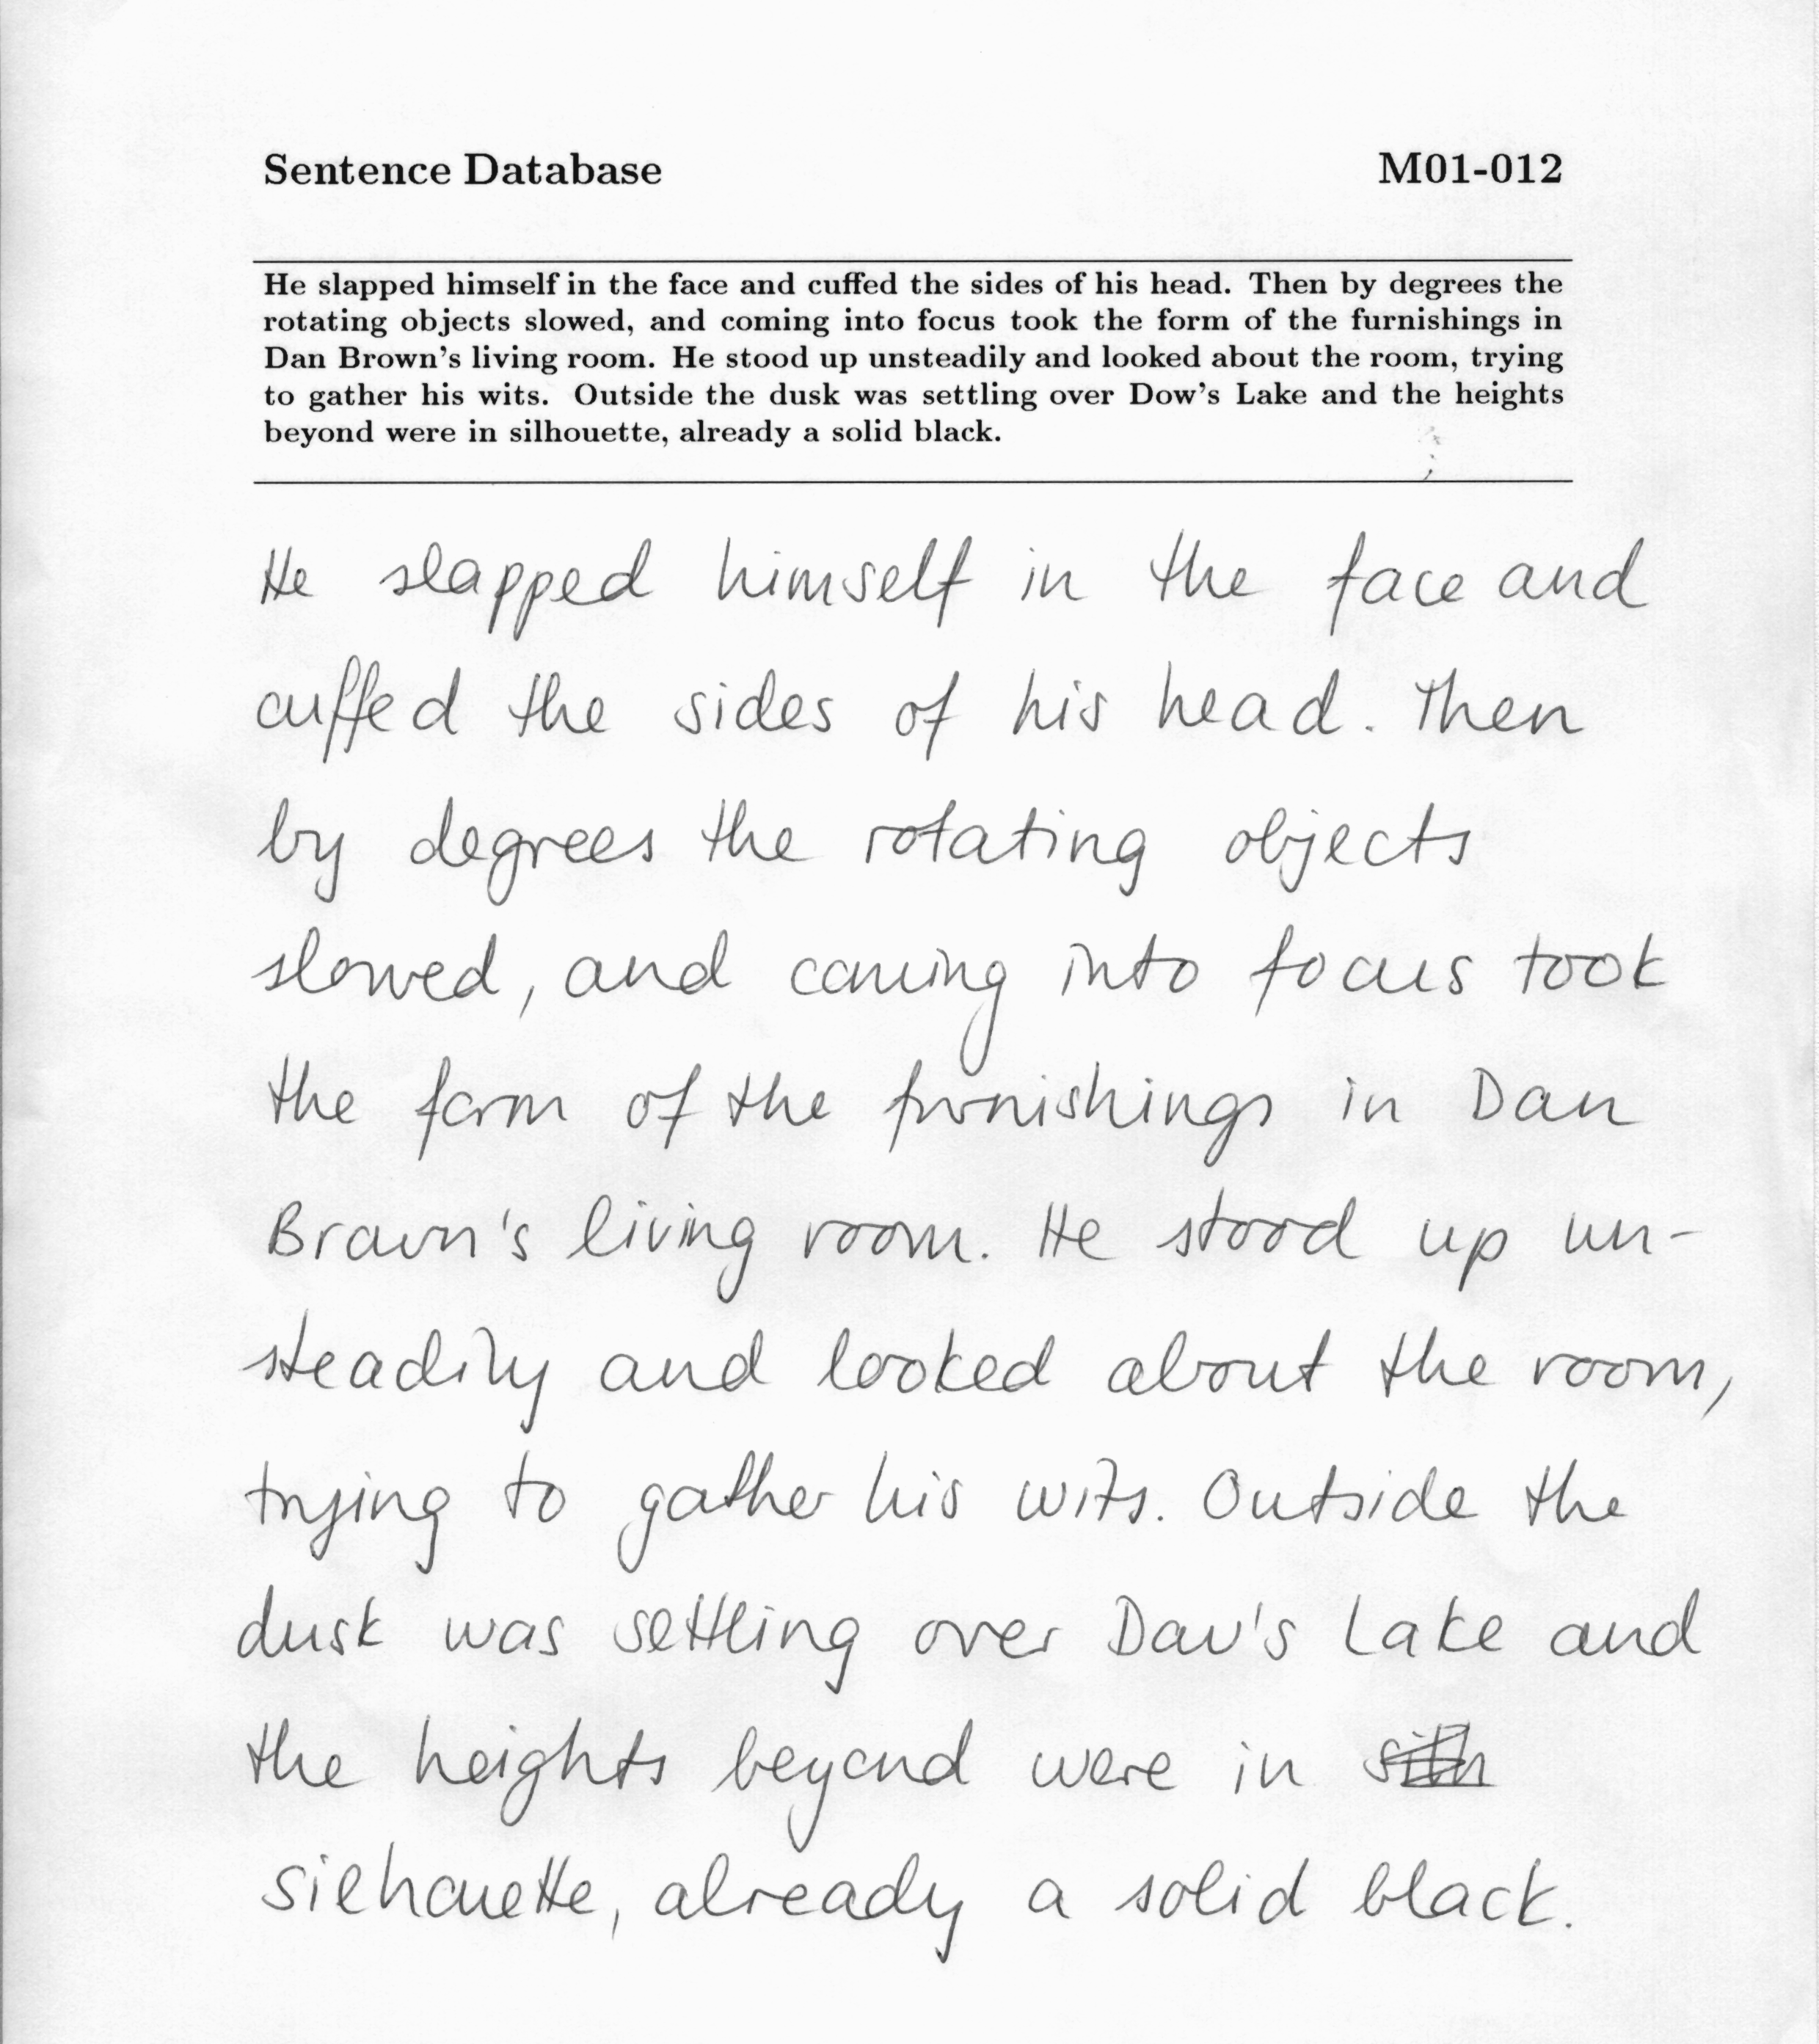 Sentence Database M01-012
He slapped himself in the face and cuffed the sides of his head. Then by degrees the
rotating objects slowed, and coming into focus took the form of the furnishings in
Dan Brown's living room. He stood up unsteadily and looked about the room, trying
to gather his wits. Outside the dusk was settling over Dow's Lake and the heights
beyond were in silhouette, already a solid black.
He slapped himself in the face and
cuffed the sides of his head. Then
by degrees the rotating objects
slowed, and coming into focus took
the form of the furnishings in Dan
Brown's living room. He stood up un-
steadily and looked about the room,
trying to gather his wits. Outside the
dusk was settling over Dow's Lake and
the heights beyond were in
silhouette, already a solid black.